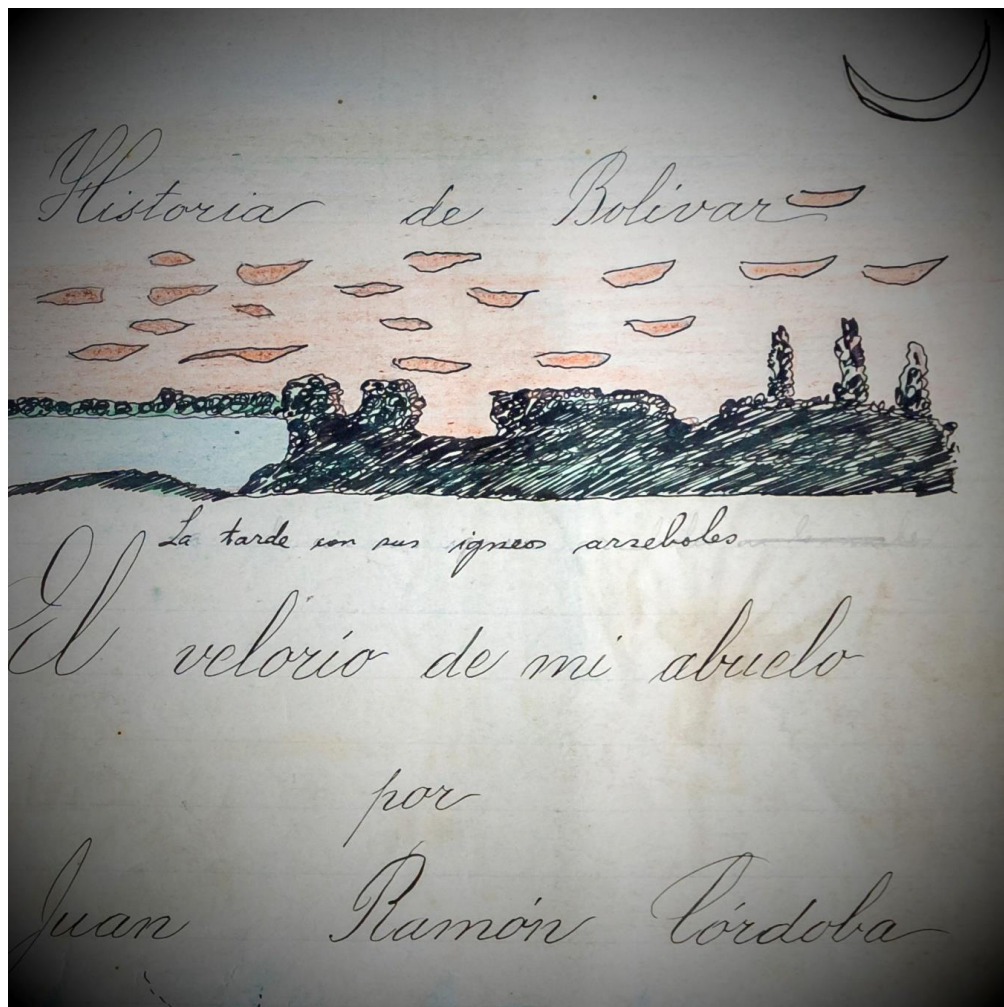 Historia de Bolívar
La tarde con sus igneos arreboles
El velorio de mi abuelo
por
Juan Ramón Córdoba